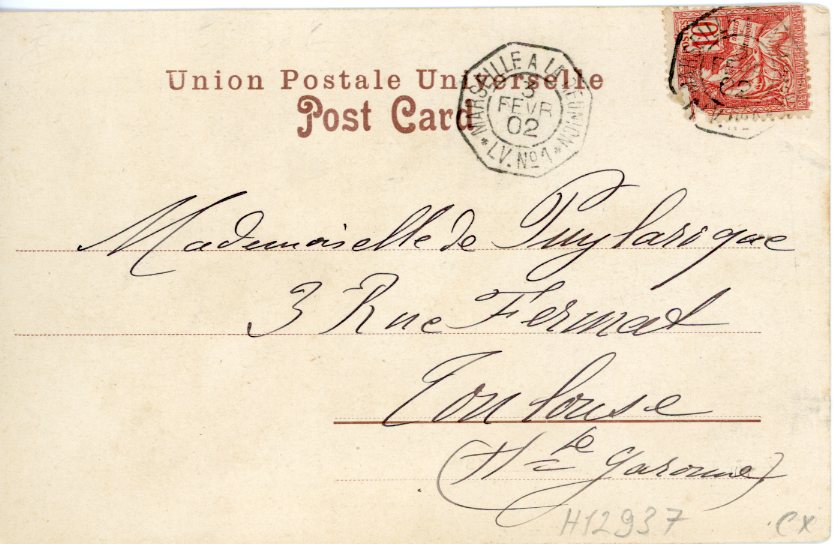 Union Postale Universelle
Post Card
MARSEILLE A LA REUNION
3
FEVR
02
* L.V. No1 *
10
Mademoiselle de Puylarique
3 Rue Fermat
Toulouse
(Hte Garonne)
H12937
CX